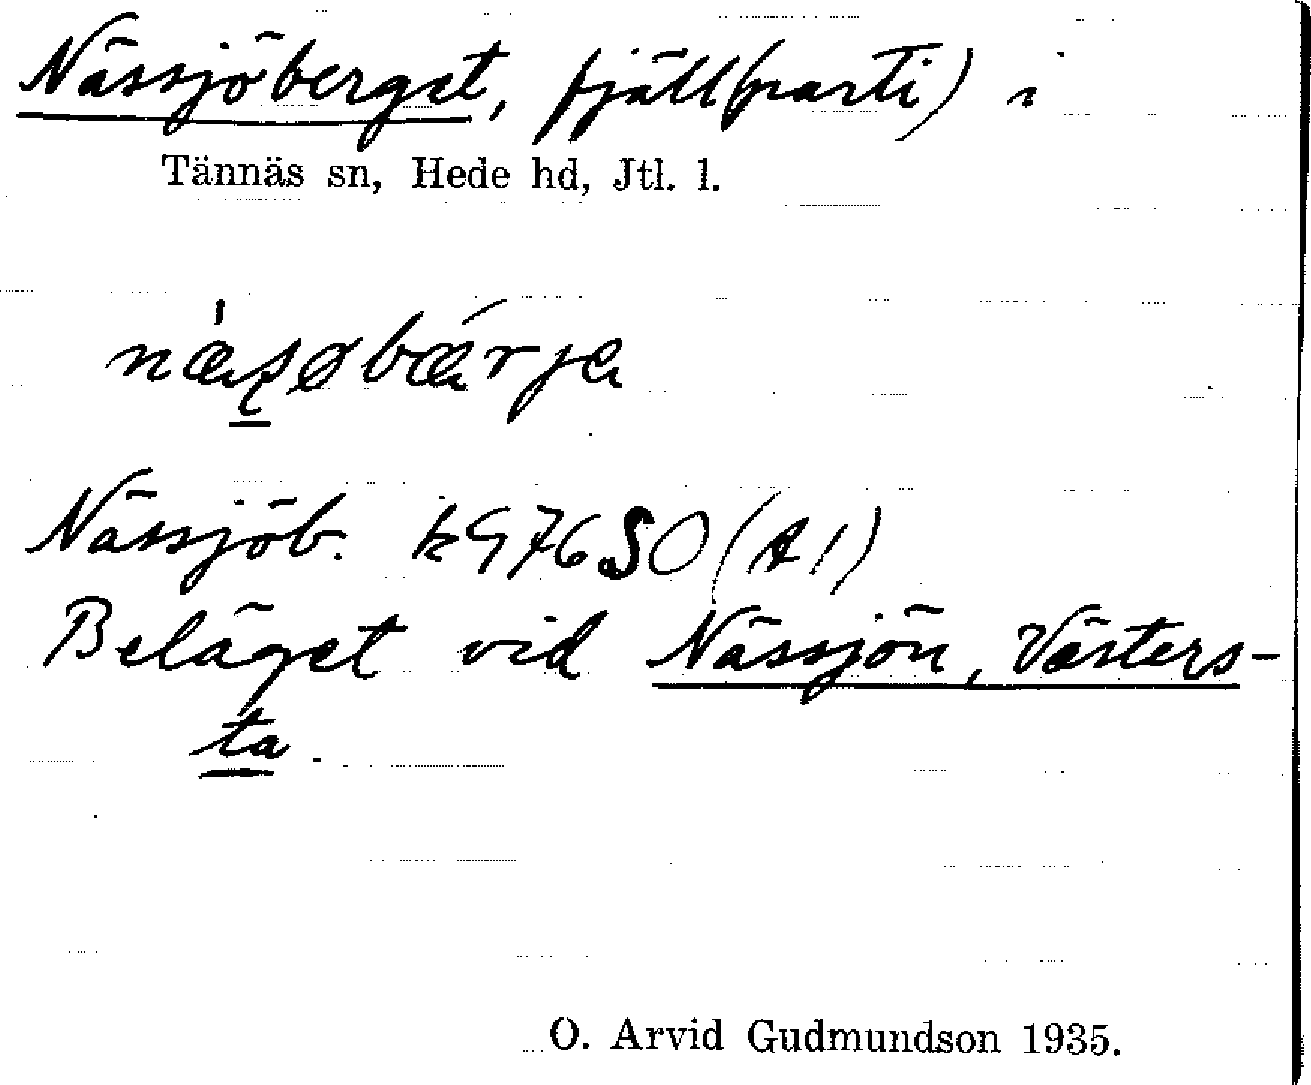 Nässjöberget, fjäll(parti) i
Tännäs sn, Hede hd, Jtl. l.
Nässjöb. k976SO (A1)
Beläget vid Nässjön, Västers-
ta.
O. Arvid Gudmundson 1935.